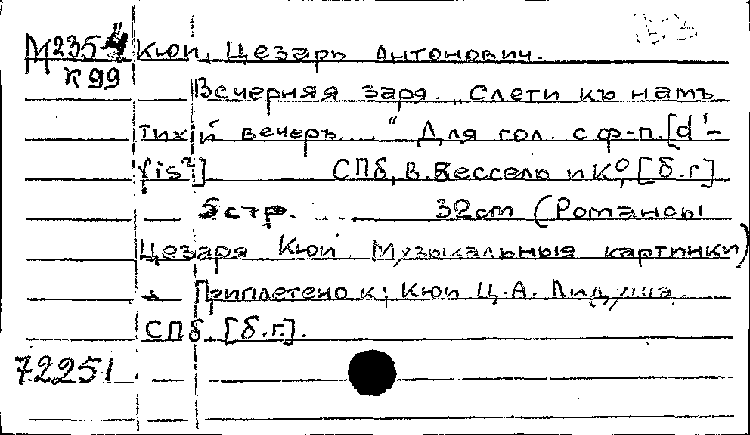 М235-4 Кюи, Цезарь Антонович.
К99
Вечерняя заря. „Слети къ намъ
тихій вечеръ..." Для гол. с ф-п. [d'-
fis²] СПб, В. Бессель и К⁰, [б.г]
5 стр. 32cm (Романсы
Цезаря Кюи Музыкальныя картинки)
Приплетено к: Кюи Ц.А.
СПб. [б.г.].
72251